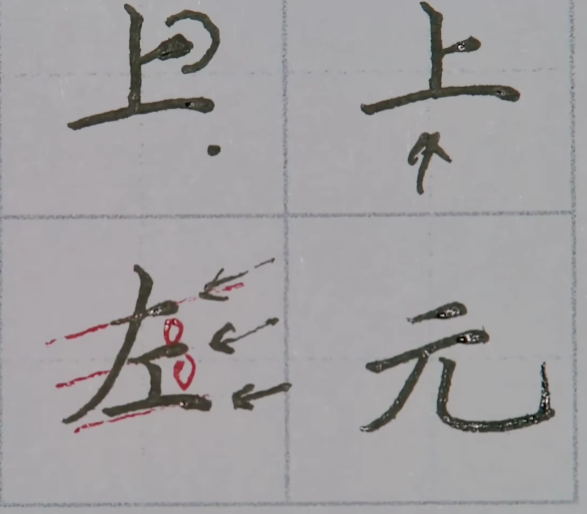 上 上
左 元